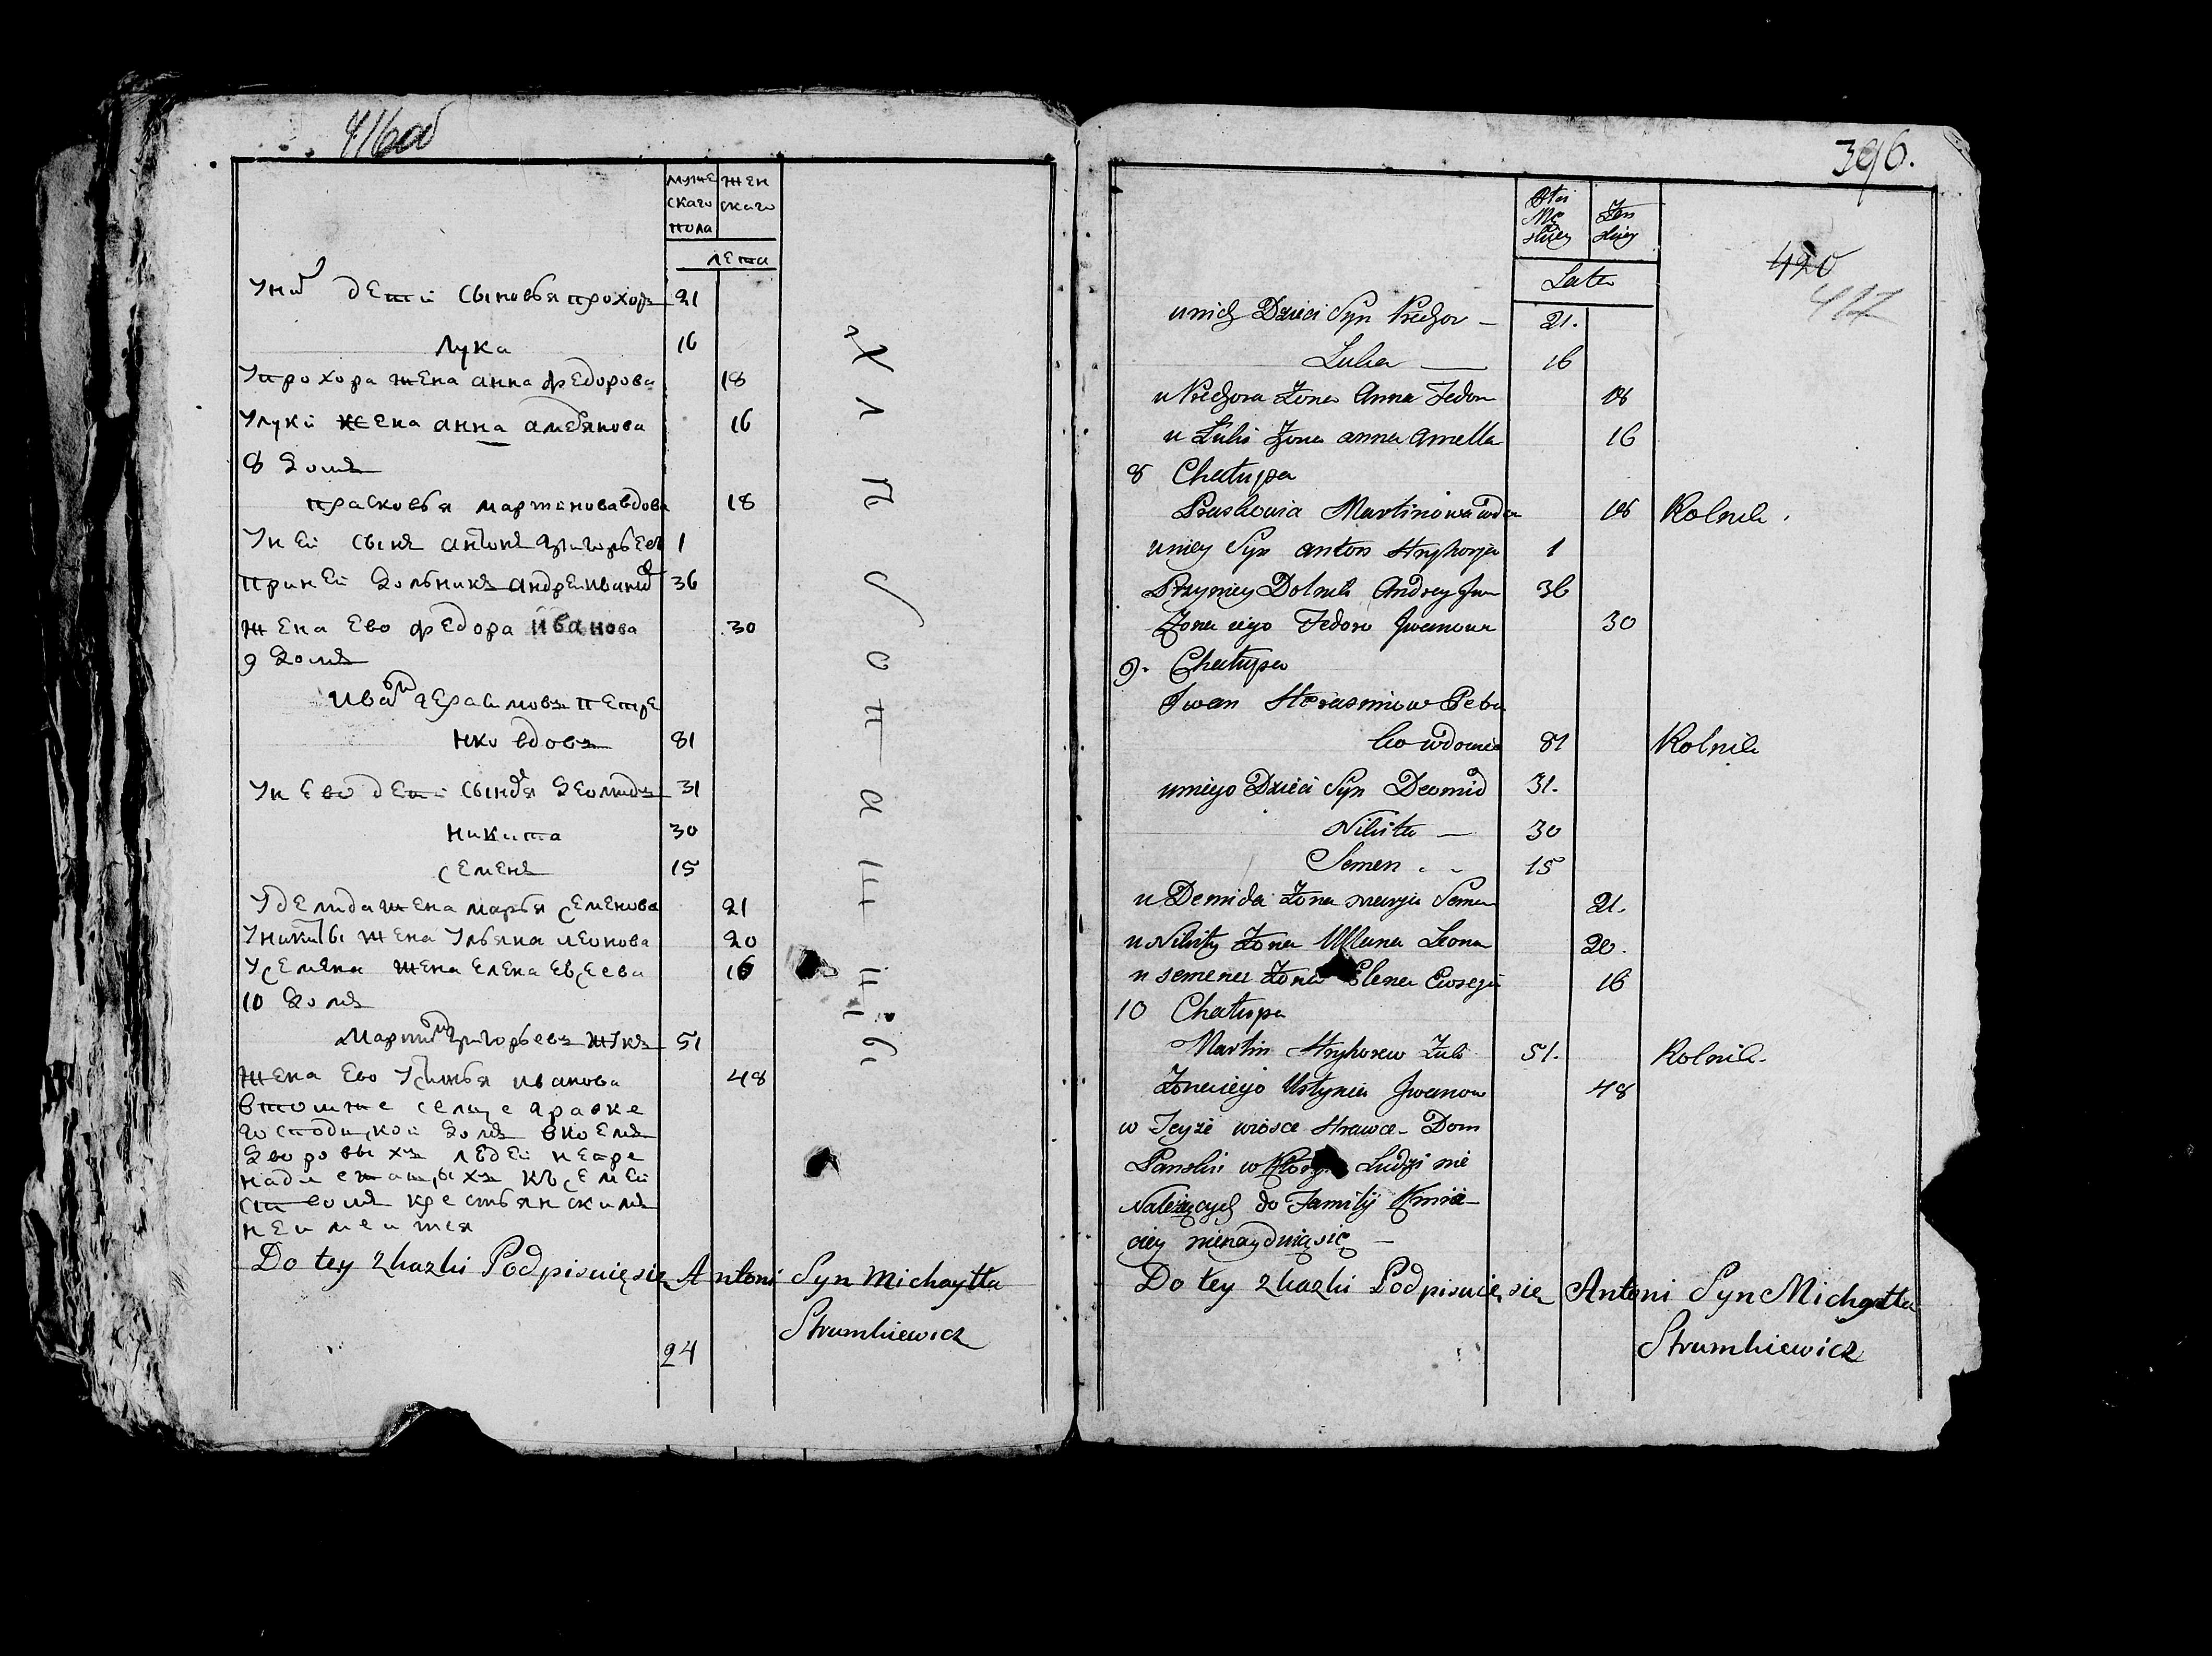 416об
муже
скаго
пола
жен
скаго
лета
Уних дети сыновья прохоръ 21
лука 16
Упрохора жена анна федорова 18
Улуки жена анна амельянова 16
8 домъ
прасковья мартинова вдова 18
Уней сынъ антонъ григорьевъ 1
приней дольникъ андрей иванов 36
жена ево федора иванова 30
9 домъ
Иван герасимовъ петре
нко вдовъ 81
Унево дети сыновя деомидъ 31
никита 30
семенъ 15
Удемида жена марья семенова 21
Уникиты жена Ульяна леонова 20
Усемена жена елена евсеева 16
10 домъ
мартин григорьевъ жукъ 51
жена ево Устинья иванова 48
втомже селце гравке
господской домъ вкоемъ
дворовыхъ людей непри
надлежащыхъ къ семей
ствомъ крестьянскимъ
неимеится
хлебопашецъ
Do tey skazki Podpisuię się Antoni Syn Michayła
Strumkiewicz
24
396.
420
417
Płci
Mę
skiey
Żen
skiey
Lata
unich Dzieci Syn Prochor 21.
Luka 16
u Prochora Żona Anna Fedor 18
u Luki Żona anna Amella 16
8 Chałupa
Praskowia Martinowa wdowa 18 Rolnik.
uniey Syn anton Hryhorja 1
Przyniey Dolnik Andrey Iwan 36
Żona iego Fedora Jwanowa 30
9. Chałupa
Iwan Herasimow Petre
ko wdowiec 81 Rolnik
uniego Dzieci Syn Deomid 31.
Nikita 30
Semen 15
u Demida Żona marja Semen 21.
u Nikity Żona Ullana Leona 20.
u semena Żona Elena Ewseja 16
10 Chałupa
Martin Hryhorew Żuk 51. Rolnik
Żona iego Ustynia Jwanow 48
w Teyże wiosce Hrawce Dom
Panski w Którym Ludzi nie
Należących do Familij Kmie
ciey nienaydуią się
Do tey skazki Podpisuię się Antoni Syn Michayła
Strumkiewicz